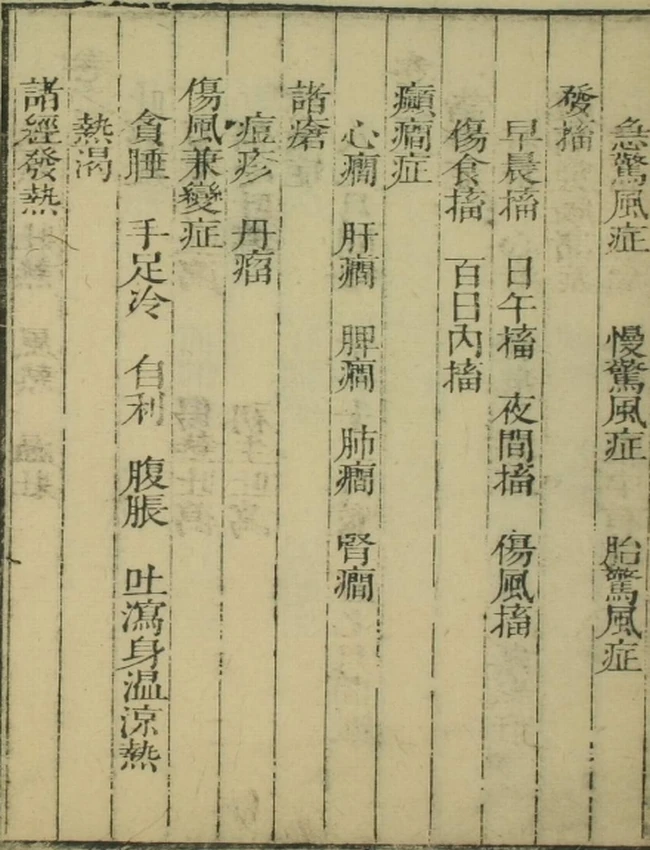 急驚風症 慢驚風症 胎驚風症
發搐
早晨搐 日午搐 夜間搐 傷風搐
傷食搐 百日內搐
癲癎症
心癎 肝癎 脾癎 肺癎 腎癎
諸瘡
痘疹 丹瘤
傷風兼變症
貪睡 手足冷 自利 腹脹 吐瀉身温涼熱
熱渴
諸經發熱